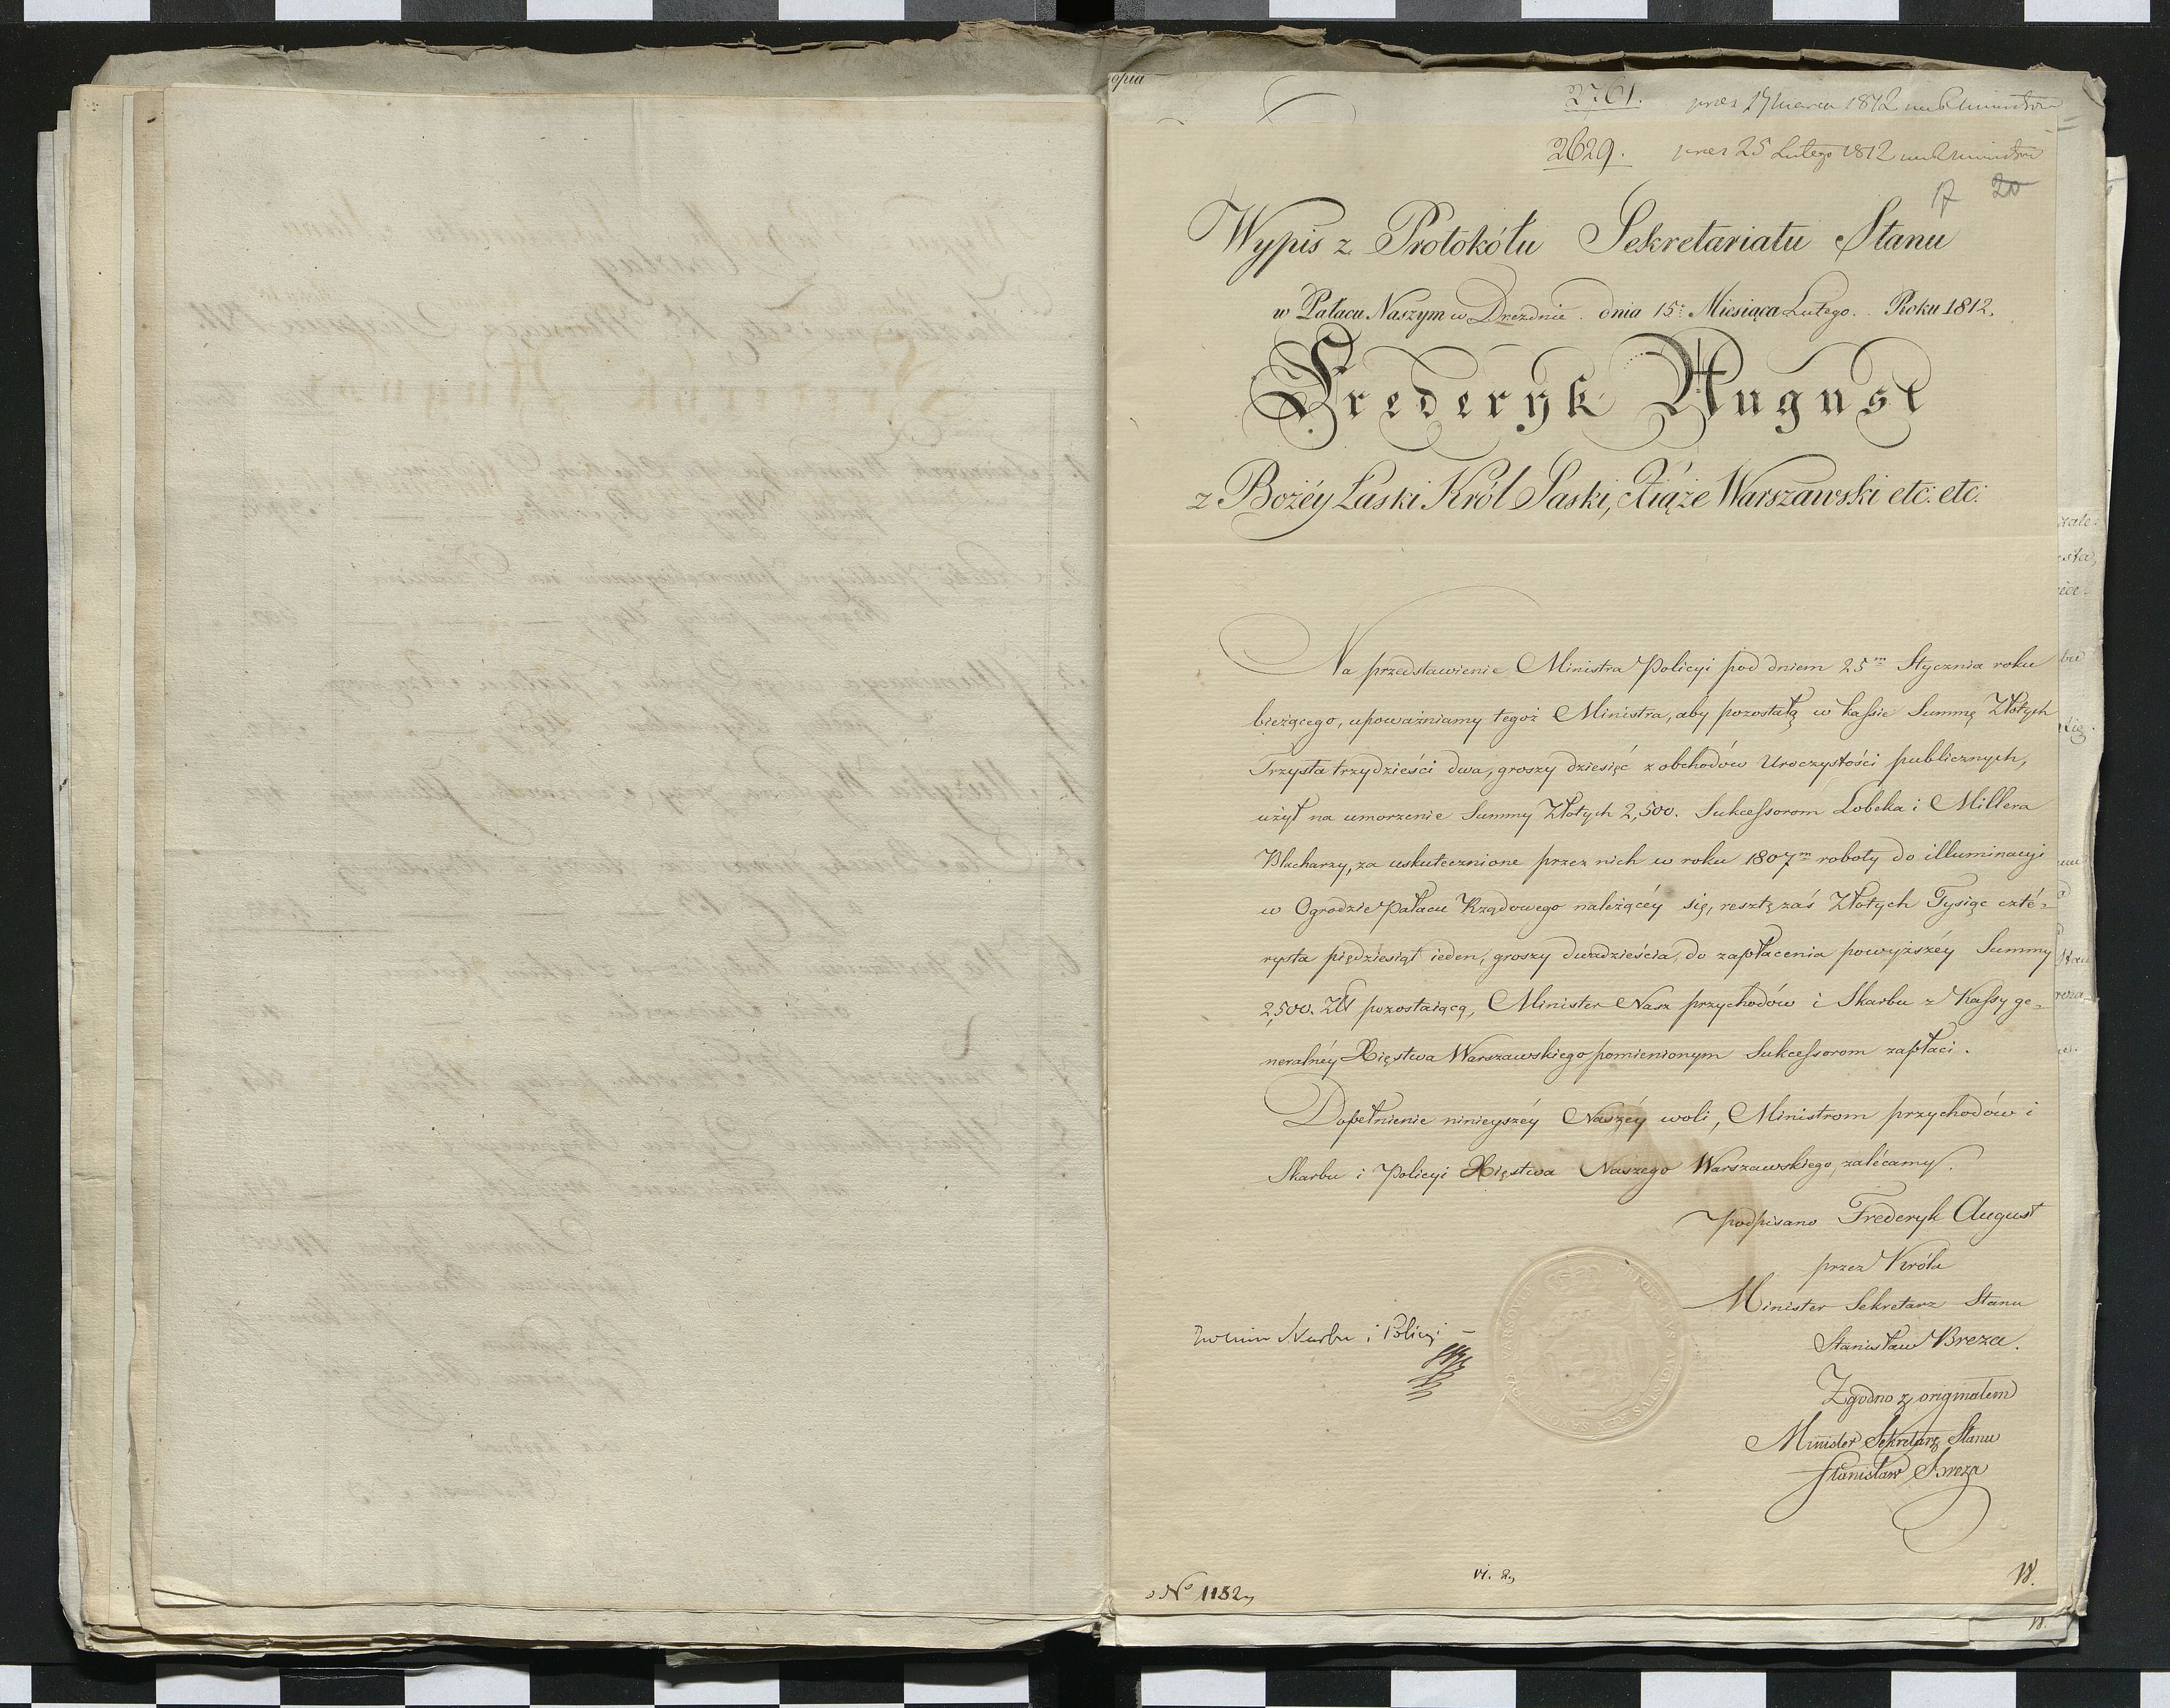 opia
2701.
2629. 25 Lutego 1812
17 20
Wypis z Protokółu Sekretariatu Stanu
w Pałacu Naszym w Dreznie. dnia 15: Miesiąca Lutego. Roku 1812.
Frederyk August
z Bożéy Łaski Król Saski, Xiąże Warszawski etc: etc:
Na przedstawienie Ministra Policyi pod dniem 25m Stycznia roku
bieżącego, upoważniamy tegoż Ministra, aby pozostałą w kassie Summę Złotych
Trzysta trzydzieści dwa, groszy dziesięć z obchodów Uroczystości publicznych,
użył na umorzenie Summy Złotych 2,500. Sukcessorom Lobeka i Millera
Blacharzy, za uskutecznione przez nich w roku 1807m roboty do illuminacyi
w Ogrodzie Pałacu Rządowego należącéy się, resztę zaś Złotych Tysiąc czté-
rysta piędziesiąt ieden, groszy dwadzieścia, do zapłacenia powyższéy Summy
2,500. Zł pozostaiącą, Minister Nasz przychodów i Skarbu z Kassy ge-
neralnéy Xięstwa Warszawskiego pomienionym Sukcessorom zapłaci.
Dopełnienie ninieyszéy Naszéy woli, Ministrom przychodów i
Skarbu i Policyi Xięstwa Naszego Warszawskiego, zalécamy.
podpisano Frederyk August
przez Króla
Minister Sekretarz Stanu
Stanisław Breza.
Skarbu i Policyi
Zgodno z originałem
Minister Sekretarz Stanu
Stanisław Breza
No 1182